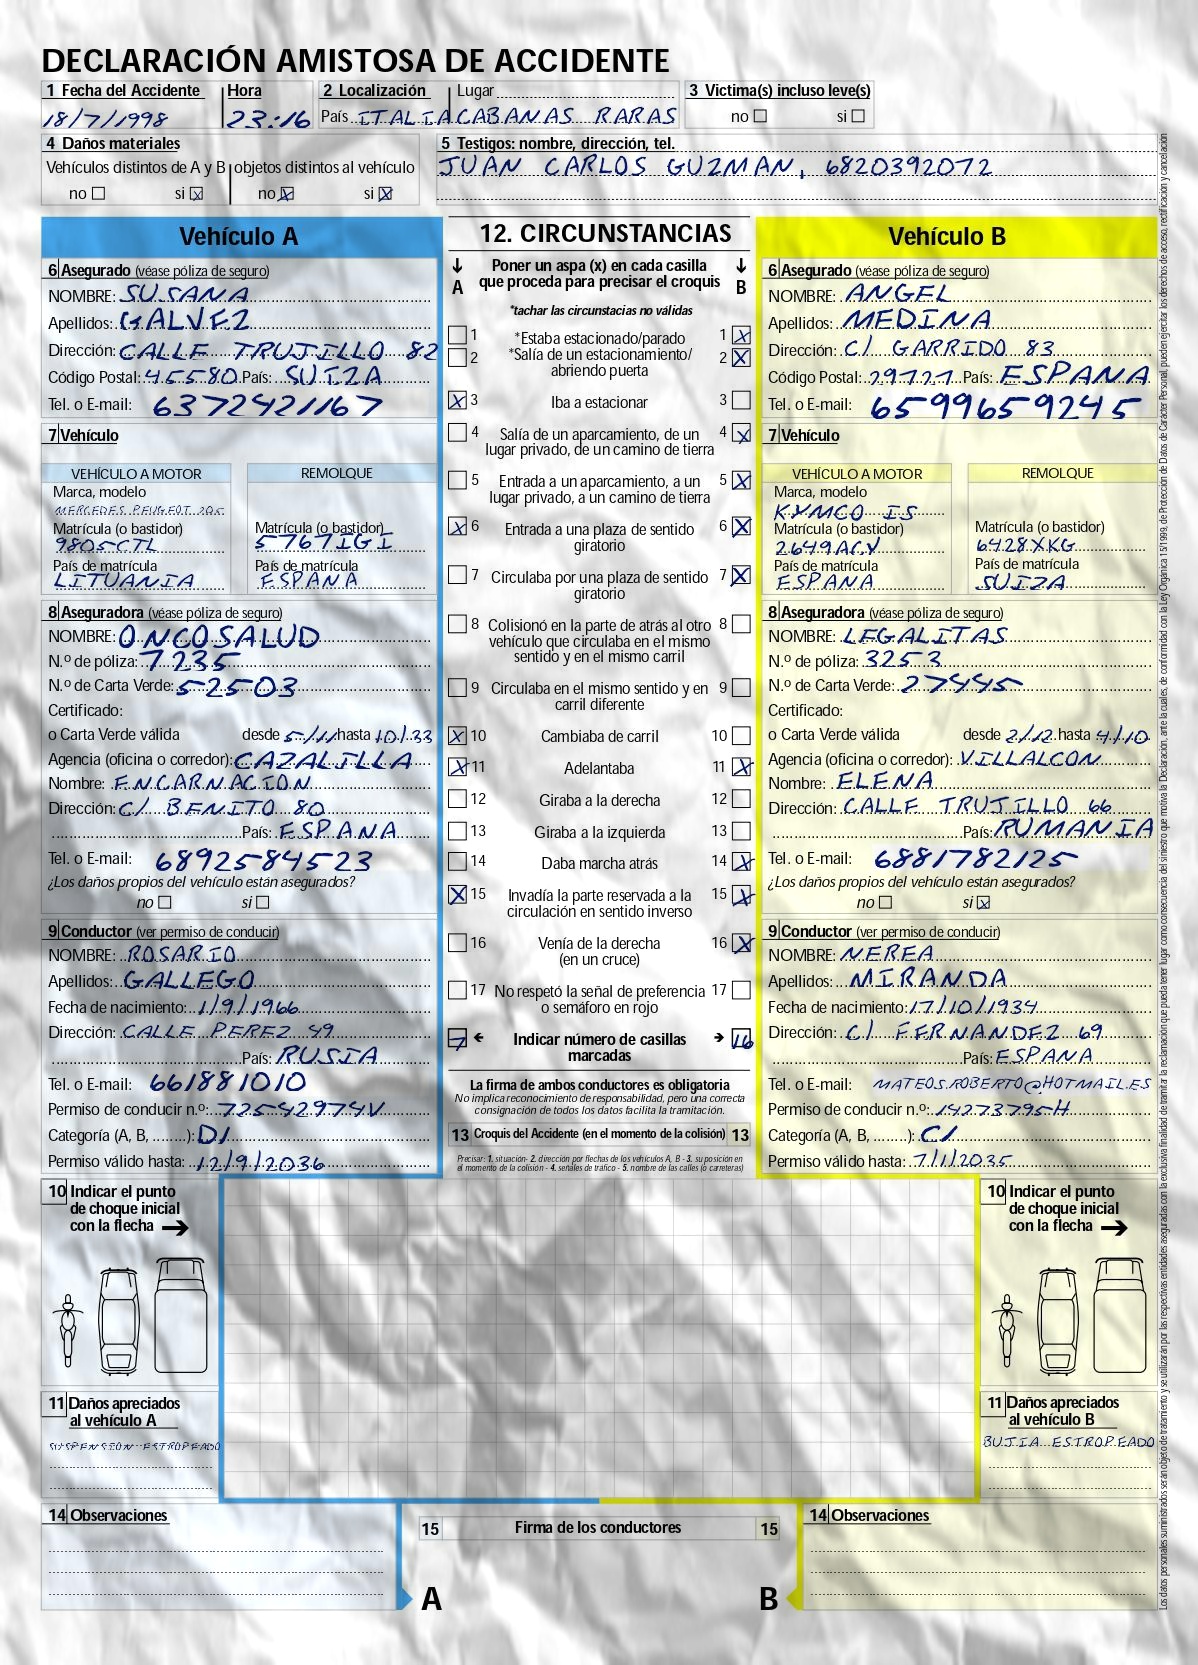 DECLARACIÓN AMISTOSA DE ACCIDENTE
1 Fecha del Accidente Hora 2 Localización Lugar 3 Victima(s) incluso leve(s)
18/7/1998 23:16 País ITALIA CABANAS RARAS no si
4 Daños materiales
Vehículos distintos de A y B objetos distintos al vehículo
no si X no X si X
5 Testigos: nombre, dirección, tel.
JUAN CARLOS GUZMAN, 6820392072
Vehículo A
6 Asegurado (véase póliza de seguro)
NOMBRE: SUSANA
Apellidos: GALVEZ
Dirección: CALLE TRUJILLO 82
Código Postal: 45580 País: SUIZA
Tel. o E-mail: 6372421167
7 Vehículo
VEHÍCULO A MOTOR REMOLQUE
Marca, modelo
MERCEDES PEUGEOT 205
Matrícula (o bastidor) Matrícula (o bastidor)
9805CTL 5767IGI
País de matrícula País de matrícula
LITUANIA ESPANA
8 Aseguradora (véase póliza de seguro)
NOMBRE: ONCOSALUD
N.º de póliza: 7235
N.º de Carta Verde: 52503
Certificado:
o Carta Verde válida desde 5/11 hasta 10/33
Agencia (oficina o corredor): CAZALILLA
Nombre: ENCARNACION
Dirección: C/ BENITO 80
País: ESPANA
Tel. o E-mail: 6892584523
¿Los daños propios del vehículo están asegurados?
no si
9 Conductor (ver permiso de conducir)
NOMBRE: ROSARIO
Apellidos: GALLEGO
Fecha de nacimiento: 1/9/1966
Dirección: CALLE PEREZ 49
País: RUSIA
Tel. o E-mail: 661881010
Permiso de conducir n.º: 72542974V
Categoría (A, B, ........): D1
Permiso válido hasta: 12/9/2036
12. CIRCUNSTANCIAS
A Poner un aspa (x) en cada casilla que proceda para precisar el croquis B
*tachar las circunstacias no válidas
1 *Estaba estacionado/parado 1 X
2 *Salía de un estacionamiento/ 2 X
abriendo puerta
X 3 Iba a estacionar 3
4 Salía de un aparcamiento, de un 4 X
lugar privado, de un camino de tierra
5 Entrada a un aparcamiento, a un 5 X
lugar privado, a un camino de tierra
X 6 Entrada a una plaza de sentido 6 X
giratorio
7 Circulaba por una plaza de sentido 7 X
giratorio
8 Colisionó en la parte de atrás al otro 8
vehículo que circulaba en el mismo
sentido y en el mismo carril
9 Circulaba en el mismo sentido y en 9
carril diferente
X 10 Cambiaba de carril 10
X 11 Adelantaba 11 X
12 Giraba a la derecha 12
13 Giraba a la izquierda 13
14 Daba marcha atrás 14 X
X 15 Invadía la parte reservada a la 15 X
circulación en sentido inverso
16 Venía de la derecha 16 X
(en un cruce)
17 No respetó la señal de preferencia 17
o semáforo en rojo
7 Indicar número de casillas 16
marcadas
La firma de ambos conductores es obligatoria
No implica reconocimiento de responsabilidad, pero una correcta
consignación de todos los datos facilita la tramitación.
13 Croquis del Accidente (en el momento de la colisión) 13
Precisar: 1. situación- 2. dirección por flechas de los vehículos A, B - 3. su posición en
el momento de la colisión - 4. señales de tráfico - 5. nombre de las calles (o carreteras)
Vehículo B
6 Asegurado (véase póliza de seguro)
NOMBRE: ANGEL
Apellidos: MEDINA
Dirección: C/ GARRIDO 83
Código Postal: 29727 País: ESPANA
Tel. o E-mail: 6599659245
7 Vehículo
VEHÍCULO A MOTOR REMOLQUE
Marca, modelo
KYMCO IS
Matrícula (o bastidor) Matrícula (o bastidor)
2649ACV 6428XKG
País de matrícula País de matrícula
ESPANA SUIZA
8 Aseguradora (véase póliza de seguro)
NOMBRE: LEGALITAS
N.º de póliza: 3253
N.º de Carta Verde: 27445
Certificado:
o Carta Verde válida desde 2/12 hasta 4/10
Agencia (oficina o corredor): VILLALCON
Nombre: ELENA
Dirección: CALLE TRUJILLO 66
País: RUMANIA
Tel. o E-mail: 6881782125
¿Los daños propios del vehículo están asegurados?
no si X
9 Conductor (ver permiso de conducir)
NOMBRE: NEREA
Apellidos: MIRANDA
Fecha de nacimiento: 17/10/1934
Dirección: C/ FERNANDEZ 69
País: ESPANA
Tel. o E-mail: MATEOS.ROBERTO@HOTMAIL.ES
Permiso de conducir n.º: 14273795H
Categoría (A, B, ........): C1
Permiso válido hasta: 7/1/2035
10 Indicar el punto
de choque inicial
con la flecha
10 Indicar el punto
de choque inicial
con la flecha
11 Daños apreciados
al vehículo A
SUSPENSION ESTROPEADO
11 Daños apreciados
al vehículo B
BUJIA ESTROPEADO
14 Observaciones
15 Firma de los conductores 15
A B
14 Observaciones